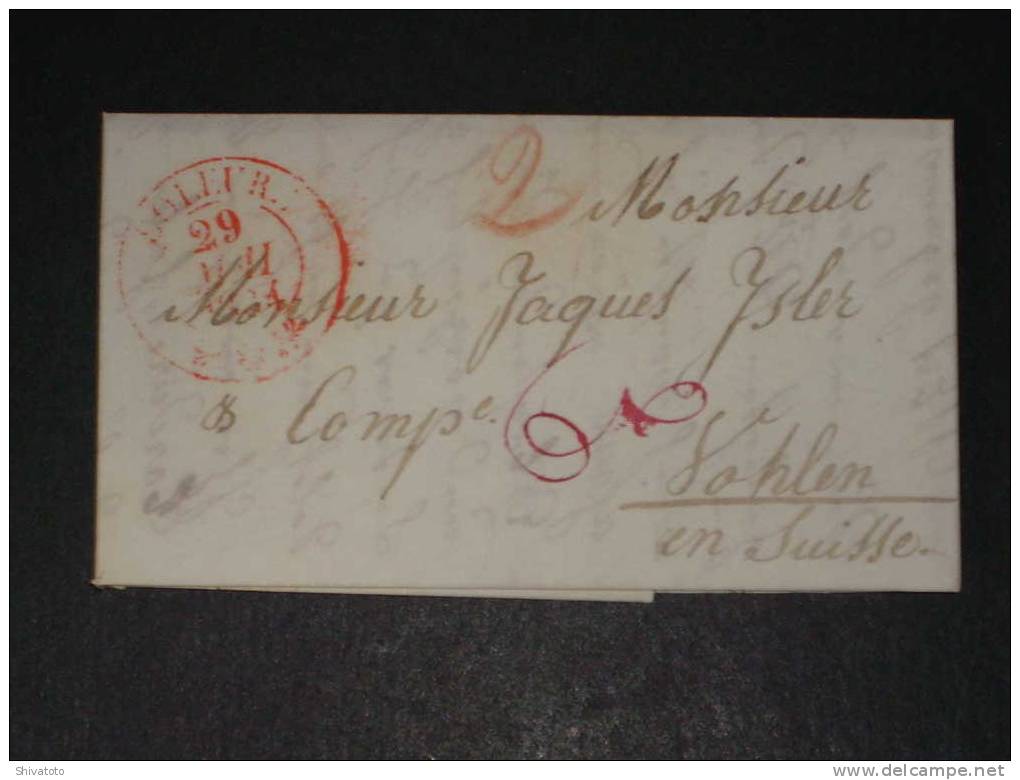 2
Monsieur
29
Monsieur Jaques Isler
& Compe.
Vohlen
en Suisse.
Shivatoto
www.delcampe.net